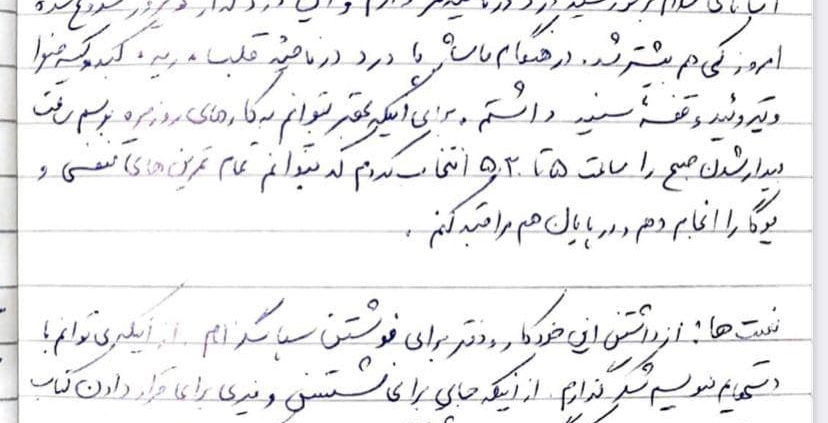 امروز کمی هم بیشتر شد. در هنگام ماساژ ها درد در ناحیه قلب، ریه، کبد و کیسه صفرا
و تیروئید و قفسهٔ سینه داشتم. برای اینکه بهتر بتوانم به کارهای روزمره برسم ساعت
بیدار شدن صبح را ساعت ۵ تا ۵:۳۰ انتخاب کردم که بتوانم تمام تمرین های تنفسی و
یوگا را انجام دهم و در پایان هم مراقبه کنم.
نعمت ها: از داشتن این خودکار و دفتر برای نوشتن سپاسگزارم. از اینکه می توانم با
دستهایم بنویسم شکر گذارم. از اینکه جایی برای نشستن و میزی برای قرار دادن کتاب